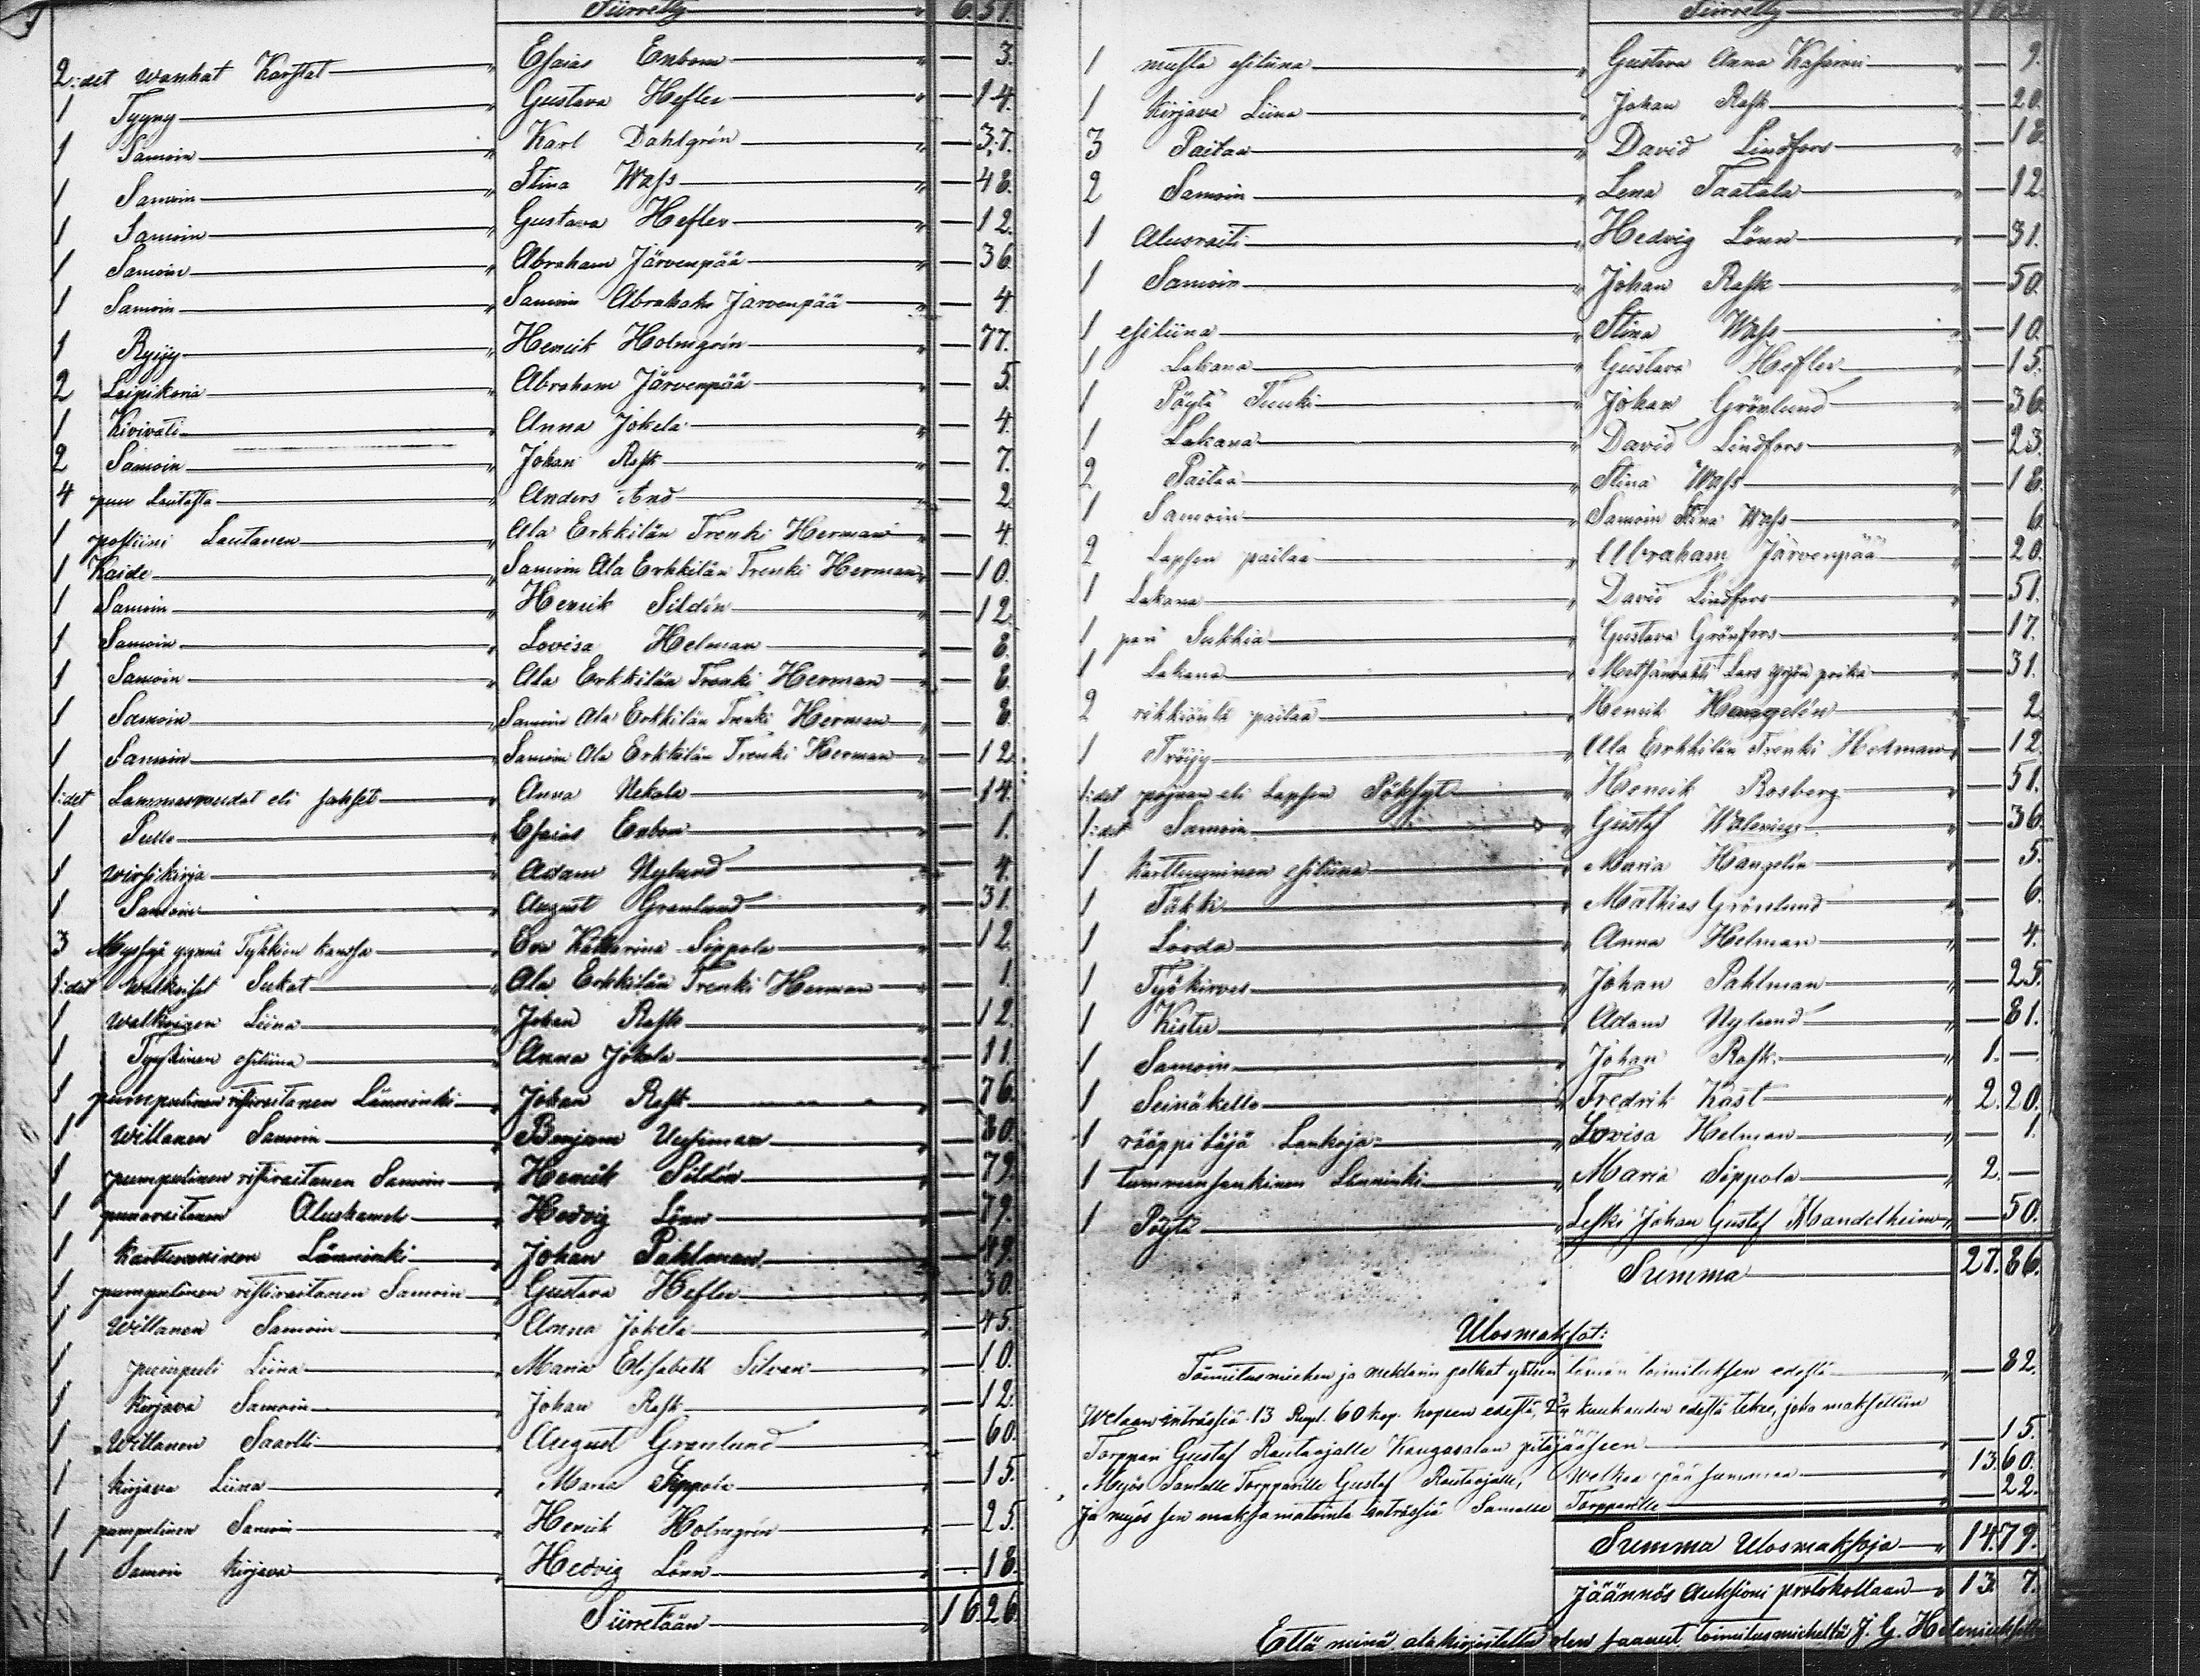 Siirretty 6. 51.
2:det wanhat Karstat Esaias Enbom " — 3.
1 Tyyny " Gustava Hefler " — 14.
1 Samoin " Karl Dahlgrén " — 37.
1 Samoin " Stina Wass " — 48.
1 Samoin " Gustava Hefler " — 12.
1 Samoin " Abraham Järvenpää " — 36.
1 Samoin " Samoin Abraham Järvenpää " — 4.
1 Ryijy " Henrik Holmgrén " — 77.
2 Leipikoria " Abraham Järvenpää " — 5.
1 Kivivati " Anna Jokela " — 4.
2 Samoin " Johan Rask " — 7.
4 puu Lautasta " Anders " — 2.
1 postiini Lautanen " Ala Erkkilän Trenki Herman " — 4.
1 Kaide " Samoin Ala Erkkilän Trenki Herman " — 10.
1 Samoin " Henrik Sildén " — 12.
1 Samoin " Lovisa Helman " — 8.
1 Samoin " Ala Erkkilän Trenki Herman " — 8.
1 Samoin " Samoin Ala Erkkilän Trenki Herman " — 8.
1 Samoin " Samoin Ala Erkkilän Trenki Herman " — 12.
1:det Lammasraudat eli sakset " Anna Nekala " — 14.
1 Pullo " Esaias Enbom " — 1.
1 wirsikirja " Adam Nylund " — 4.
1 Samoin " August Granlund " — 31.
3 Myssyä ynnä Tykkiin kanssa " Eva Katarina Sippola " — 12.
1:det Walkoiset Sukat " Ala Erkkilän Trenki Herman " — 1.
1 Walkoinen Liina " Johan Rask " — 12.
1 Tyykinen esiliina " Anna Jokela " — 11.
1 pumpulinen ristiraitanen Länninki " Johan Rask " — 76.
1 Willanen Samoin " Benjam Uusimaa " — 80.
1 pumpulinen ristiraitanen Samoin " Henrik Sildén " — 79.
1 punaraitanen Alushameh " Hedvig Lönn " — 79.
1 Karttuuninen Länninki " Johan Pahlman " — 49.
1 pumpulinen ristiraitanen Samoin " Gustava Hefler " — 30.
1 Willanen Samoin " Anna Jokela " — 45.
1 pumpuli Liina " Maria Elisabeth Silvan " — 10.
1 Kirjava Samoin " Johan Rask " — 12.
1 Willanen Saartti " August Granlund " — 60.
1 kirjava Liina " Maria Sippola " — 15.
1 pumpulinen Samoin " Henrik Holmgrén " — 25.
1 Samoin kirjava " Hedvig Lönn " — 18.
Siirretään " 16. 26.
Siirretty " 16. 26.
1 musta esiliina " Gustava Anna " — 9.
1 Kirjava Liina " Johan Rask " — 20.
3 Paitaa " David Lindfors " — 18.
2 Samoin " Lena Taatala " — 12.
1 Alusraiti " Hedvig Lönn " — 31.
1 Samoin " Johan Rask " — 50.
1 esiliina " Stina Wass " — 10.
1 Lakana " Gustava Hefler " — 15.
1 Pöytä Tuuki " Johan Grönlund " — 36.
1 Lakana " David Lindfors " — 23.
2 Paitaa " Stina Wass " — 18.
1 Samoin " Samoin Stina Wass " — 6.
2 Lapsen paitaa " Abraham Järvenpää " — 20.
1 Lakana " David Lindfors " — 51.
1 pari Sukkia " Gustava Grönfors " — 17.
1 Lakana " Lars Yrjön poika " — 31.
2 rikkiöntä paitaa " Henrik Hangelin " — 2.
1 Tröijy " Ala Erkkilän Trenki Herman " — 12.
1:det pojaan eli Lapsen Pöksyt " Henrik Rosberg " — 51.
1:det Samoin " Gustaf Walenius " — 36.
1 karttuuninen esiliina " Maria Hangelin " — 5.
1 Täkki " Mathias Grönlund " — 6.
1 Loorda " Anna Helman " — 4.
1 Työkirves " Johan Pahlman " — 25.
1 Kistu " Adam Nylund " — 81.
1 Samoin " Johan Rask " 1. —
1 Seinäkello " Fredrik Kast " 2. 20.
1 rääppitöjä Lankoja " Lovisa Helman " — 1.
1 tummansankinen Länninki " Maria Sippola " 2. —
1 Pöytä " Leski Johan Gustaf Mandelheim " — 50.
Summa 27. 86.
Ulosmaksot:
Toimitusmiehen ja meklarin palkat yhteen tämän toimituksen edestä — 82.
Welaan inträssiä 13 Rupl. 60 kop. hopeen edestä, 2 3/4 kuukauden edestä tekee, joka maksettiin
Torppari Gustaf Rautaojalle Kangasalan pitäjääseen — 15.
Myös Samalle Torpparille Gustaf Rautaojalle, Welkaa pää summaa 13. 60.
Ja myös sen maksamatointa inträssiä Samalle Torpparille — 22.
Summa Ulosmaksoja " 14. 79.
Jäännös Auksioni protokollaan " 13. 7.
Että minä alakirjoitettu olen saanut toimitusmieheltä J. G.